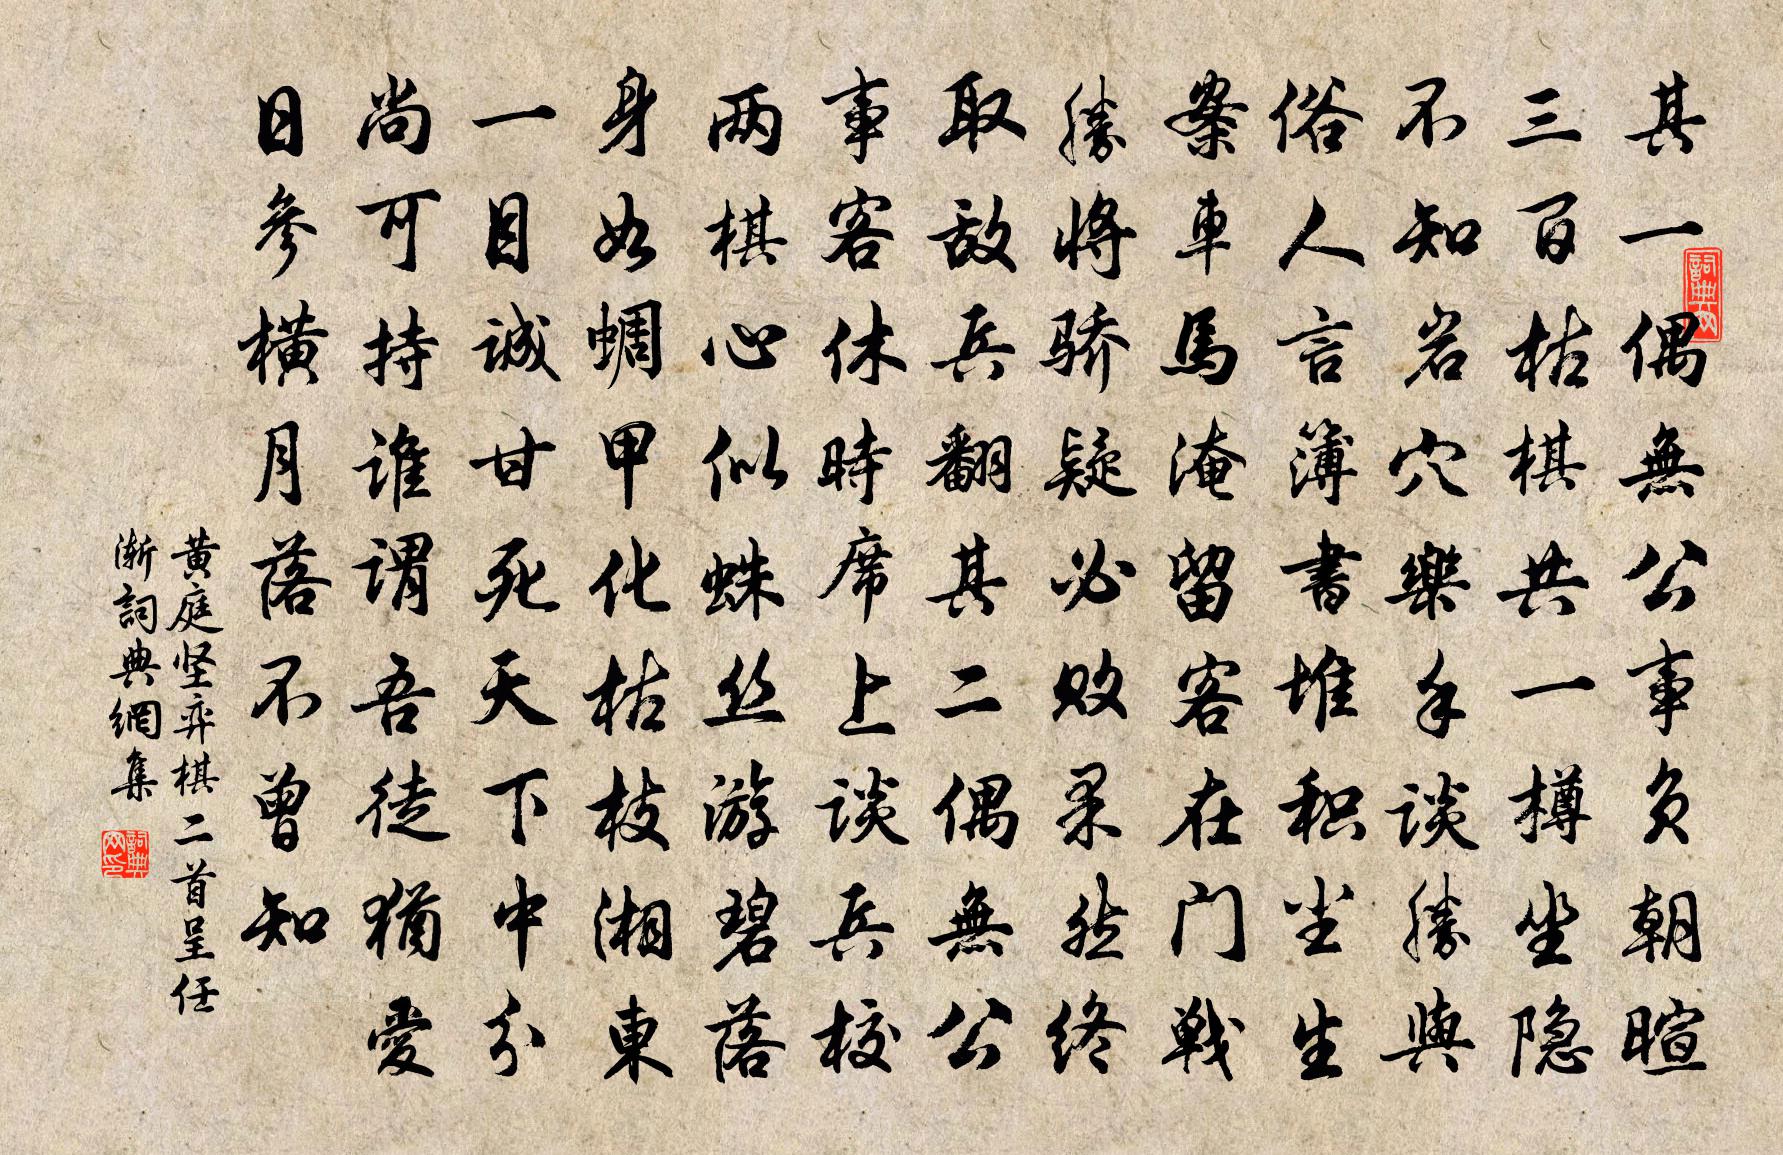 其一偶無公事負朝暄
三百枯棋共一樽坐隐
不知岩穴樂手談勝與
俗人言簿書堆积尘生
案車馬淹留客在门戦
勝將骄疑必败果然终
取敌兵翻其二偶無公
事客休時席上談兵校
两棋心似蛛丝游碧落
身如蜩甲化枯枝湘東
一目诚甘死天下中分
尚可持谁謂吾徒猶愛
日參橫月落不曾知
黄庭坚弈棋二首呈任
渐詞典網集
詞典网
詞典网印